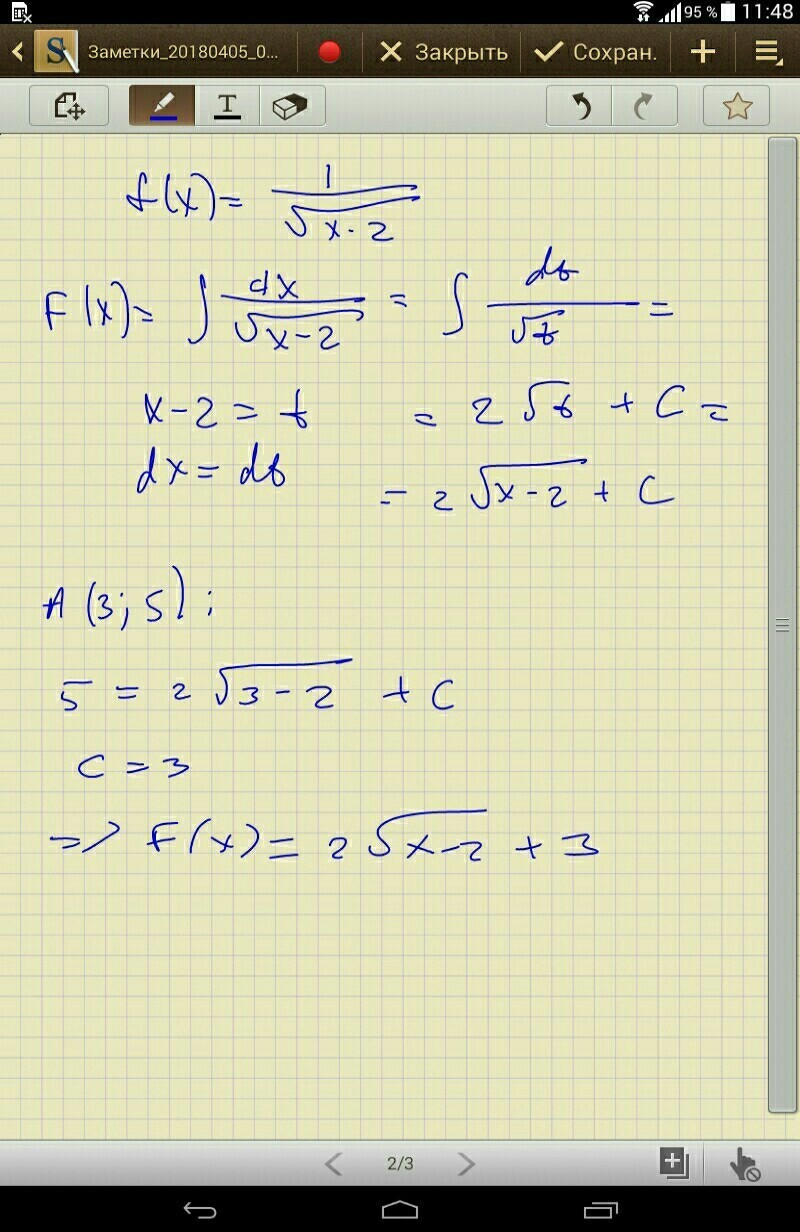 95 % 11:48
Заметки_20180405_0... Закрыть Сохран.
T
f(x) = 1/√(x-2)
F(x) = ∫ dx/√(x-2) = ∫ dt/√t =
x-2 = t = 2√t + C =
dx = dt = 2√(x-2) + C
A(3; 5);
5 = 2√(3-2) + C
C = 3
=> F(x) = 2√(x-2) + 3
2/3